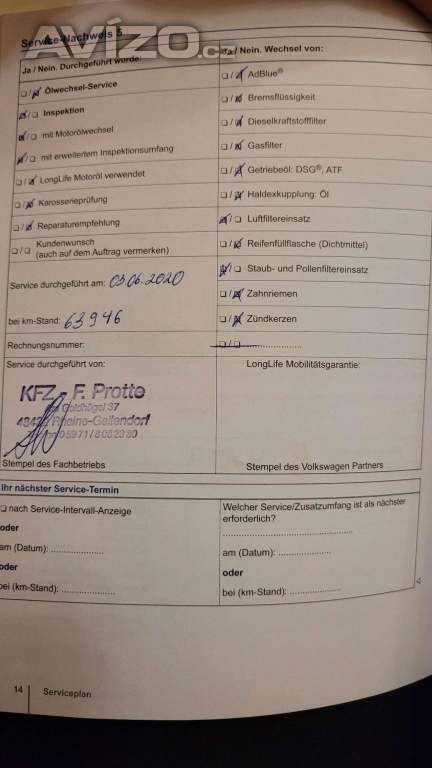 Service-Nachweis 5
Avízo.cz
Ja / Nein. Durchgeführt wurde:
❏/❏ Ölwechsel-Service
❏/❏ Inspektion
❏/❏ mit Motorölwechsel
❏/❏ mit erweitertem Inspektionsumfang
❏/❏ LongLife Motoröl verwendet
❏/❏ Karosserieprüfung
❏/❏ Reparaturempfehlung
❏/❏ Kundenwunsch
(auch auf dem Auftrag vermerken)
Service durchgeführt am: 03.06.2020
bei km-Stand: 63946
Rechnungsnummer:
Ja / Nein. Wechsel von:
❏/❏ AdBlue®
❏/❏ Bremsflüssigkeit
❏/❏ Dieselkraftstofffilter
❏/❏ Gasfilter
❏/❏ Getriebeöl: DSG®, ATF
❏/❏ Haldexkupplung: Öl
❏/❏ Luftfiltereinsatz
❏/❏ Reifenfüllflasche (Dichtmittel)
❏/❏ Staub- und Pollenfiltereinsatz
❏/❏ Zahnriemen
❏/❏ Zündkerzen
❏/❏ ....................
Service durchgeführt von:
KFZ - F. Protte
Goldhügel 37
Rheine-Gellendorf
05971/8082380
Stempel des Fachbetriebs
LongLife Mobilitätsgarantie:
Stempel des Volkswagen Partners
Ihr nächster Service-Termin
❏ nach Service-Intervall-Anzeige
oder
am (Datum): ....................
oder
bei (km-Stand): ....................
Welcher Service/Zusatzumfang ist als nächster
erforderlich?
....................
am (Datum): ....................
oder
bei (km-Stand): ....................
14 Serviceplan